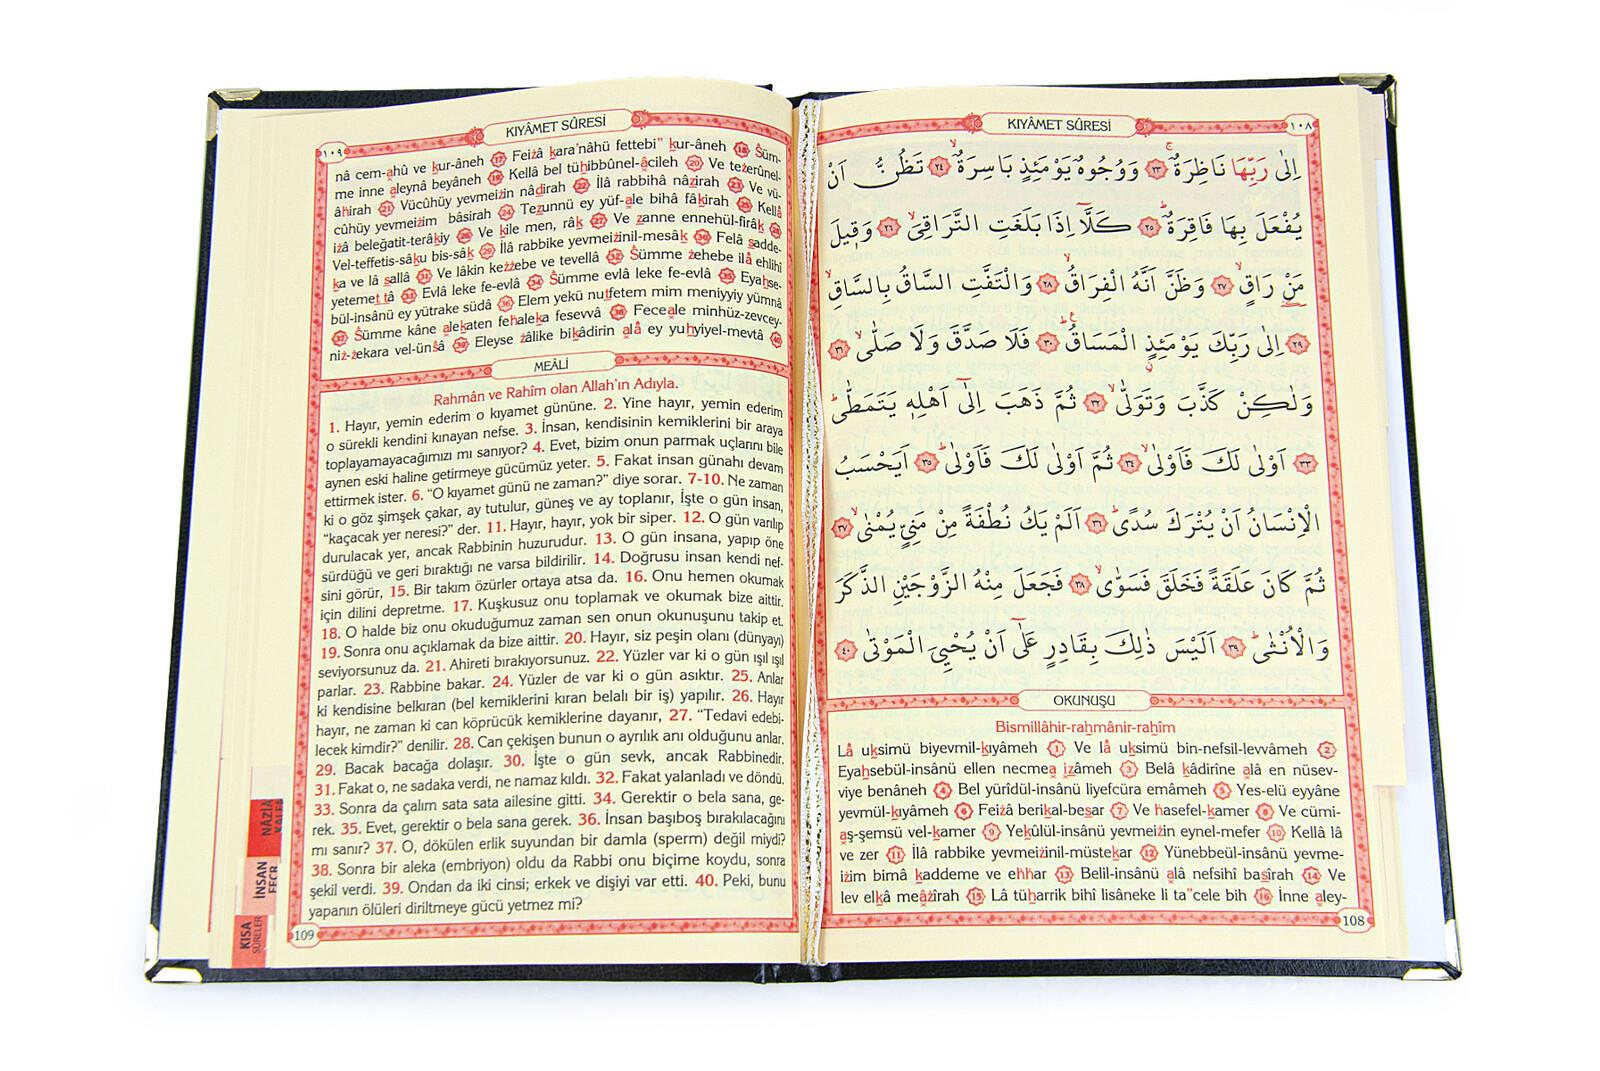 KIYÂMET SÛRESİ
١٠٨
اِلٰى رَبِّهَا نَاظِرَةٌۚ ﴿٢٣﴾ وَوُجُوهٌ يَوْمَئِذٍ بَاسِرَةٌۙ ﴿٢٤﴾ تَظُنُّ اَنْ
يُفْعَلَ بِهَا فَاقِرَةٌۜ ﴿٢٥﴾ كَلَّٓا اِذَا بَلَغَتِ التَّرَاقِيَۙ ﴿٢٦﴾ وَقِيلَ
مَنْ رَاقٍۙ ﴿٢٧﴾ وَظَنَّ اَنَّهُ الْفِرَاقُۙ ﴿٢٨﴾ وَالْتَفَّتِ السَّاقُ بِالسَّاقِۙ
﴿٢٩﴾ اِلٰى رَبِّكَ يَوْمَئِذٍ الْمَسَاقُۜ ﴿٣٠﴾ فَلَا صَدَّقَ وَلَا صَلّٰىۙ ﴿٣١﴾
وَلٰكِنْ كَذَّبَ وَتَوَلّٰىۙ ﴿٣٢﴾ ثُمَّ ذَهَبَ اِلٰٓى اَهْلِهِ يَتَمَطّٰىۜ
﴿٣٣﴾ اَوْلٰى لَكَ فَاَوْلٰىۙ ﴿٣٤﴾ ثُمَّ اَوْلٰى لَكَ فَاَوْلٰىۜ ﴿٣٥﴾ اَيَحْسَبُ
الْاِنْسَانُ اَنْ يُتْرَكَ سُدًىۜ ﴿٣٦﴾ اَلَمْ يَكُ نُطْفَةً مِنْ مَنِيٍّ يُمْنٰىۙ ﴿٣٧﴾
ثُمَّ كَانَ عَلَقَةً فَخَلَقَ فَسَوّٰىۙ ﴿٣٨﴾ فَجَعَلَ مِنْهُ الزَّوْجَيْنِ الذَّكَرَ
وَالْاُنْثٰىۜ ﴿٣٩﴾ اَلَيْسَ ذٰلِكَ بِقَادِرٍ عَلٰٓى اَنْ يُحْيِيَ الْمَوْتٰى ﴿٤٠﴾
OKUNUŞU
Bismillâhir-rahmânir-rahîm
Lâ uksimü biyevmil-kıyâmeh 1 Ve lâ uksimü bin-nefsil-levvâmeh 2
Eyahsebül-insânü ellen necmea izâmeh 3 Belâ kâdirîne alâ en nüsev-
viye benâneh 4 Bel yürîdül-insânü liyefcüra emâmeh 5 Yes-elü eyyâne
yevmül-kıyâmeh 6 Feiżâ berikal-besar 7 Ve hasefel-kamer 8 Ve cümi-
aş-şemsü vel-kamer 9 Yekûlül-insânü yevmeiżin eynel-mefer 10 Kellâ lâ
ve zer 11 İlâ rabbike yevmeiżinil-müstekar 12 Yünebbeül-insânü yevme-
iżim bimâ kaddeme ve ehhar 13 Belil-insânü alâ nefsihî basîrah 14 Ve
lev elkâ meâżîrah 15 Lâ tüharrik bihî lisâneke li ta"cele bih 16 İnne aley-
108
KIYÂMET SÛRESİ
١٠٩
nâ cem-ahû ve kur-âneh 17 Feiżâ kara'nâhü fettebi" kur-âneh 18 Śüm-
me inne aleynâ beyâneh 19 Kellâ bel tühibbûnel-âcileh 20 Ve teżerûnel-
âhirah 21 Vücûhüy yevmeiżin nâdirah 22 İlâ rabbihâ nâzirah 23 Ve vü-
cûhüy yevmeiżim bâsirah 24 Tezunnü ey yüf-ale bihâ fâkirah 25 Kellâ
iżâ beleğatit-terâkiy 26 Ve kîle men, râk 27 Ve zanne ennehül-firâk 28
Vel-teffetis-sâku bis-sâk 29 İlâ rabbike yevmeiżinil-mesâk 30 Felâ sadde-
ka ve lâ sallâ 31 Ve lâkin keżżebe ve tevellâ 32 Śümme żehebe ilâ ehlihî
yetemettâ 33 Evlâ leke fe-evlâ 34 Śümme evlâ leke fe-evlâ 35 Eyahse-
bül-insânü ey yütrake südâ 36 Elem yekü nutfetem mim meniyyiy yümnâ
37 Śümme kâne alekaten fehaleka fesevvâ 38 Feceale minhüz-zevcey-
niż-żekara vel-ünśâ 39 Eleyse żâlike bikâdirin alâ ey yuhyiyel-mevtâ 40
MEÂLİ
Rahmân ve Rahîm olan Allah'ın Adıyla.
1. Hayır, yemin ederim o kıyamet gününe. 2. Yine hayır, yemin ederim
o sürekli kendini kınayan nefse. 3. İnsan, kendisinin kemiklerini bir araya
toplayamayacağımızı mı sanıyor? 4. Evet, bizim onun parmak uçlarını bile
aynen eski haline getirmeye gücümüz yeter. 5. Fakat insan günahı devam
ettirmek ister. 6. “O kıyamet günü ne zaman?” diye sorar. 7-10. Ne zaman
ki o göz şimşek çakar, ay tutulur, güneş ve ay toplanır, İşte o gün insan,
“kaçacak yer neresi?” der. 11. Hayır, hayır, yok bir siper. 12. O gün varılıp
durulacak yer, ancak Rabbinin huzurudur. 13. O gün insana, yapıp öne
sürdüğü ve geri bıraktığı ne varsa bildirilir. 14. Doğrusu insan kendi nef-
sini görür, 15. Bir takım özürler ortaya atsa da. 16. Onu hemen okumak
için dilini depretme. 17. Kuşkusuz onu toplamak ve okumak bize aittir.
18. O halde biz onu okuduğumuz zaman sen onun okunuşunu takip et.
19. Sonra onu açıklamak da bize aittir. 20. Hayır, siz peşin olanı (dünyayı)
seviyorsunuz da. 21. Ahireti bırakıyorsunuz. 22. Yüzler var ki o gün ışıl ışıl
parlar. 23. Rabbine bakar. 24. Yüzler de var ki o gün asıktır. 25. Anlar
ki kendisine belkıran (bel kemiklerini kıran belalı bir iş) yapılır. 26. Hayır
hayır, ne zaman ki can köprücük kemiklerine dayanır, 27. “Tedavi edebi-
lecek kimdir?” denilir. 28. Can çekişen bunun o ayrılık anı olduğunu anlar.
29. Bacak bacağa dolaşır. 30. İşte o gün sevk, ancak Rabbinedir.
31. Fakat o, ne sadaka verdi, ne namaz kıldı. 32. Fakat yalanladı ve döndü.
33. Sonra da çalım sata sata ailesine gitti. 34. Gerektir o bela sana, ge-
rek. 35. Evet, gerektir o bela sana gerek. 36. İnsan başıboş bırakılacağını
mı sanır? 37. O, dökülen erlik suyundan bir damla (sperm) değil miydi?
38. Sonra bir aleka (embriyon) oldu da Rabbi onu biçime koydu, sonra
şekil verdi. 39. Ondan da iki cinsi; erkek ve dişiyi var etti. 40. Peki, bunu
yapanın ölüleri diriltmeye gücü yetmez mi?
109
KALEM
İNSAN
FECR
KISA
SÛRELER